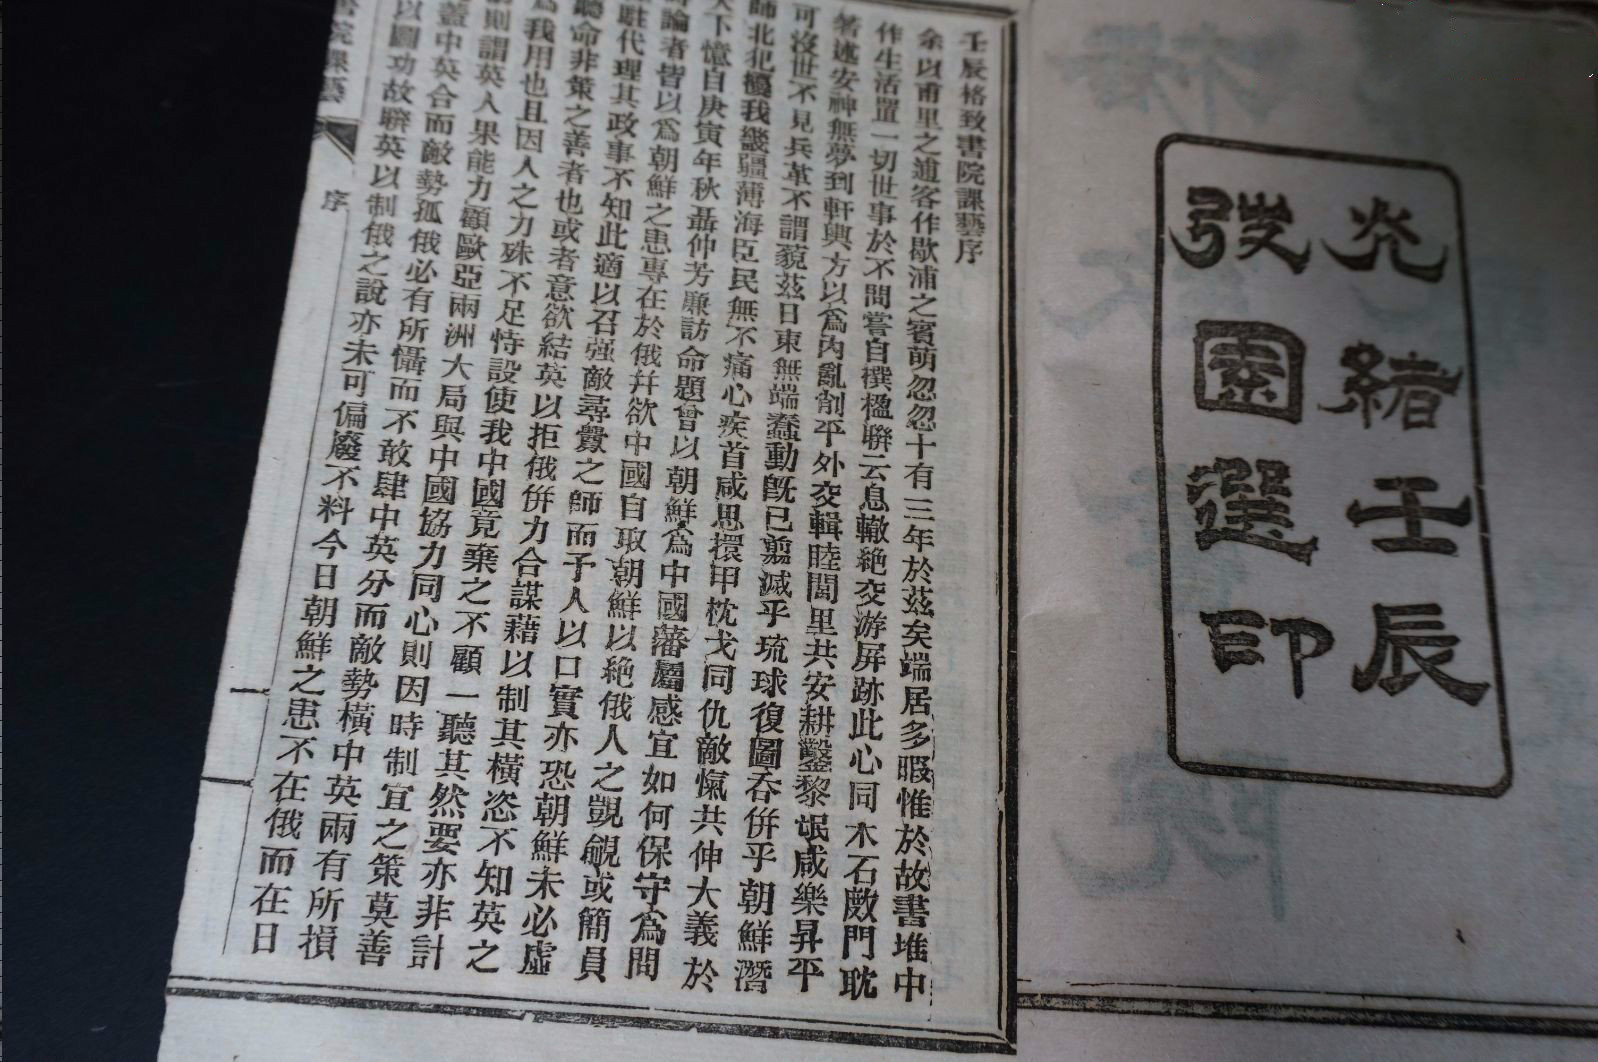 光緒壬辰
弢園選印
壬辰格致書院課藝序
余以甫里之逋客作歇浦之賓萌忽忽十有三年於茲矣端居多暇惟於故書堆中
作生活置一切世事於不問嘗自撰楹聨云息轍絶交游屏跡此心同木石敞門耽
著述安神無夢到軒輿方以爲內亂削平外交輯睦閭里共安耕鑿黎氓咸樂昇平
可沒世不見兵革不謂藐茲日東無端蠢動旣已翦滅乎琉球復圖吞併乎朝鮮潛
師北犯優我畿疆薄海臣民無不痛心疾首咸思擐甲枕戈同仇敵愾共伸大義於
天下憶自庚寅年秋聶仲芳廉訪命題曾以朝鮮爲中國藩屬感宜如何保守爲問
論者皆以爲朝鮮之患專在於俄幷欲中國自取朝鮮以絶俄人之覬覦或簡員
駐代理其政事不知此適以召强敵尋釁之師而予人以口實亦恐朝鮮未必虛
聽命非策之善者也或者意欲結英以拒俄倂力合謀藉以制其橫恣不知英之
爲我用也且因人之力殊不足恃設使我中國竟棄之不顧一聽其然要亦非計
則謂英人果能力顧歐亞兩洲大局與中國協力同心則因時制宜之策莫善
蓋中英合而敵勢孤俄必有所懾而不敢肆中英分而敵勢橫中英兩有所損
以圖功故聨英以制俄之說亦未可偏廢不料今日朝鮮之患不在俄而在日
書院課藝
序
一